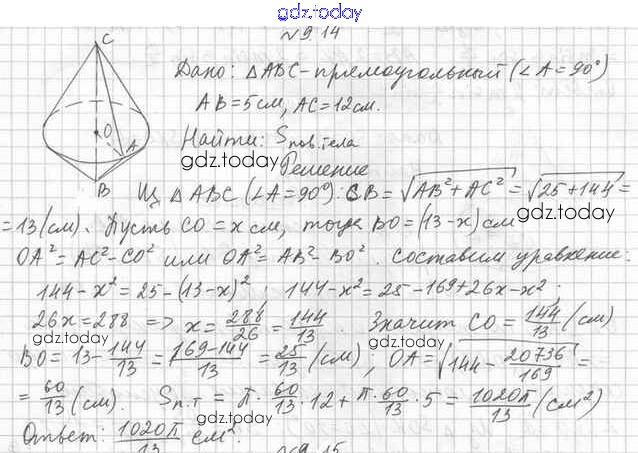 gdz.today
№9.14
C
O
A
B
Дано: △ABC - прямоугольный (∠A=90°)
AB=5см, AC=12см.
Найти: Sпов.тела
gdz.today
gdz.today
Решение
Из △ABC (∠A=90°): CB=√(AB²+AC²)=√(25+144)=
gdz.today
=13(см). Пусть CO=x см, тогда BO=(13-x)см
OA²=AC²-CO² или OA²=AB²-BO². Составим уравнение:
144-x²=25-(13-x)² 144-x²=25-169+26x-x²;
26x=288 => x=288/26=144/13. Значит CO=144/13(см)
gdz.today
BO=13-144/13=(169-144)/13=25/13(см); OA=√(144-20736/169)=
gdz.today
=60/13(см). Sп.т=π·60/13·12+π·60/13·5=1020π/13(см²)
gdz.today
Ответ: 1020π/13 см².
№9.15